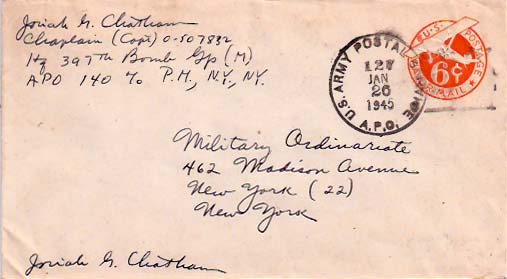 Josiah G. Chatham
Chaplain (Capt) O-507832
Hq 397th Bomb Gp (M)
APO 140 % P.M., N.Y., N.Y.
U.S. ARMY POSTAL SERVICE
127
JAN
26
1945
A.P.O.
U.S. POSTAGE
6¢
AIR MAIL
Military Ordinariate
462 Madison Avenue
New York (22)
New York
Josiah G. Chatham